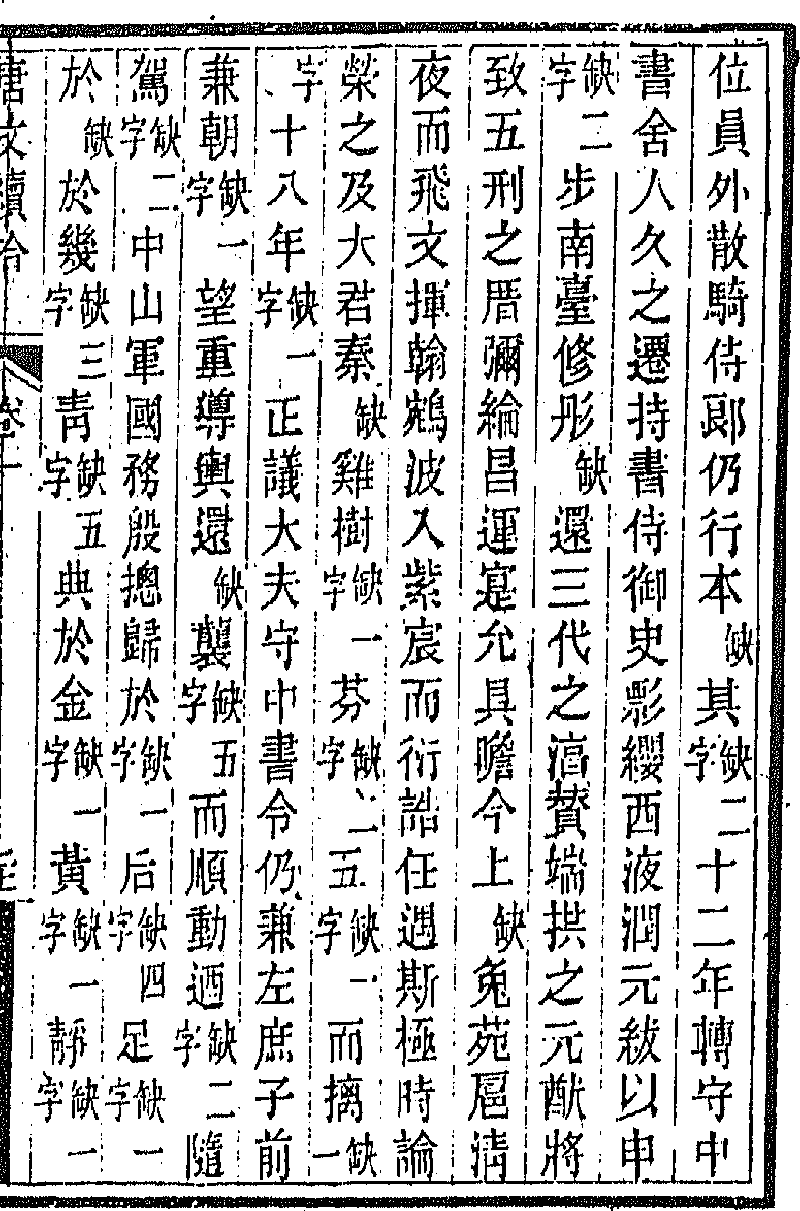 位員外散騎侍郎仍行本缺其缺二字十二年轉守中
書舍人久之遷持書侍御史彯纓西液潤元紱以申
缺二字步南臺修彤缺還三代之湻贊端拱之元猷將
致五刑之厝彌綸昌運寔允具瞻今上缺兔苑扈清
夜而飛文揮翰鵷波入紫宸而衍誥任遇斯極時論
榮之及大君秦缺雞樹缺一字芬缺二字五缺一字而摛缺一
字十八年缺一字正議大夫守中書令仍兼左庶子前
兼朝缺一字望重導輿還缺襲缺五字而順動迺缺二字隨
駕缺二字中山軍國務殷總歸於缺一字后缺四字足缺一字
於缺於幾缺三字青缺五字典於金缺一字黃缺一字靜缺一
唐文續拾 卷一